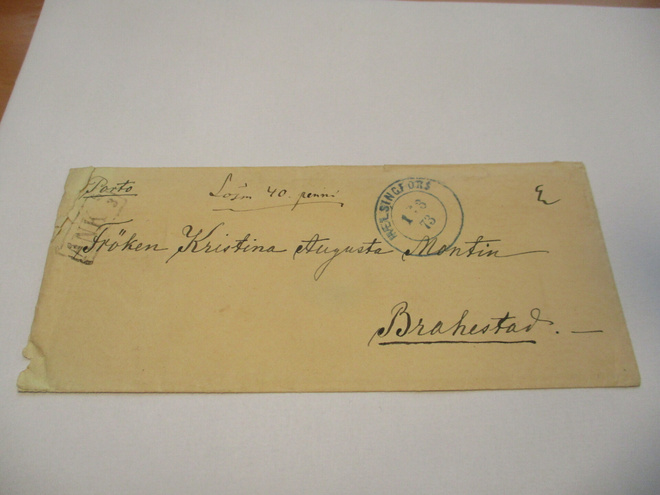 Porto
40. penni
HELSINGFORS
73
ANK
Fröken Kristina Augusta Montin
Brahestad.